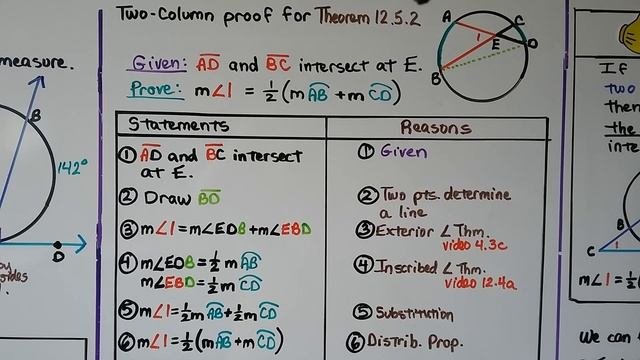 Two-Column proof for Theorem 12.5.2
Given: AD and BC intersect at E.
Prove: m∠1 = 1/2(mAB + mCD)
A
C
1
E
D
B
Statements
Reasons
① AD and BC intersect
at E.
① Given
② Draw BD
② Two pts. determine
a line
③ m∠1 = m∠EDB + m∠EBD
③ Exterior ∠ Thm.
video 4.3c
④ m∠EDB = 1/2 mAB
m∠EBD = 1/2 mCD
④ Inscribed ∠ Thm.
video 12.4a
⑤ m∠1 = 1/2 mAB + 1/2 mCD
⑤ Substitution
⑥ m∠1 = 1/2(mAB + mCD)
⑥ Distrib. Prop.
measure.
B
142°
D
If
two
then
the
inte
B
C
1
m∠1 = 1/2(
We can